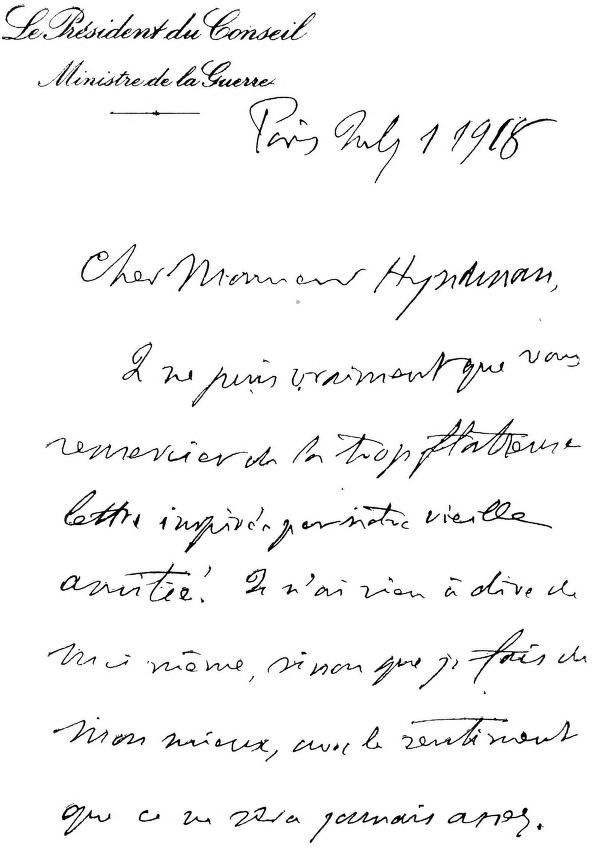 Le Président du Conseil
Ministre de la Guerre
Paris July 1 1918
Cher Monsieur Hyndman,
Je ne puis vraiment que vous
remercier de la trop flatteuse
lettre inspirée par notre vieille
amitié. Je n'ai rien à dire de
moi même, sinon que je fais de
mon mieux, avec le sentiment
que ce ne sera jamais assez.